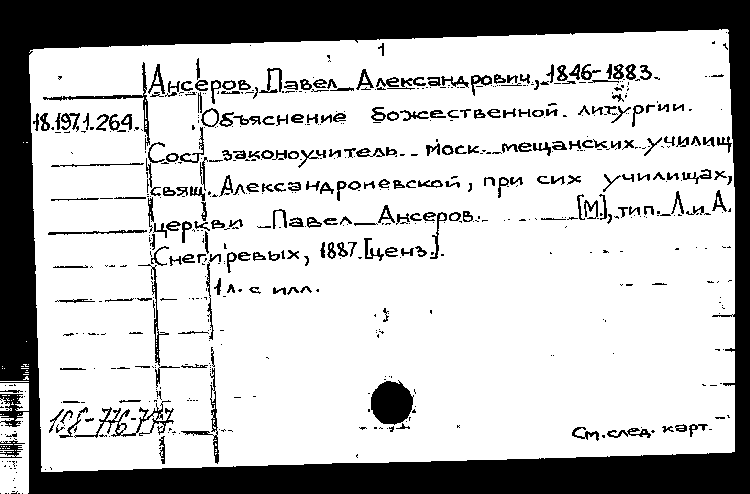 1
Ансеров, Павел Александрович, 1846-1883.
18.197.1.264.
Объяснение божественной литургии.
Сост. законоучитель Моск. мещанских училищ
свящ. Александроневской, при сих училищах,
церкви Павел Ансеров. [М.], тип. Л. и А.
Снегиревых, 1887 [ценз.].
1 л. с илл.
168-776-777.
См. след. карт.